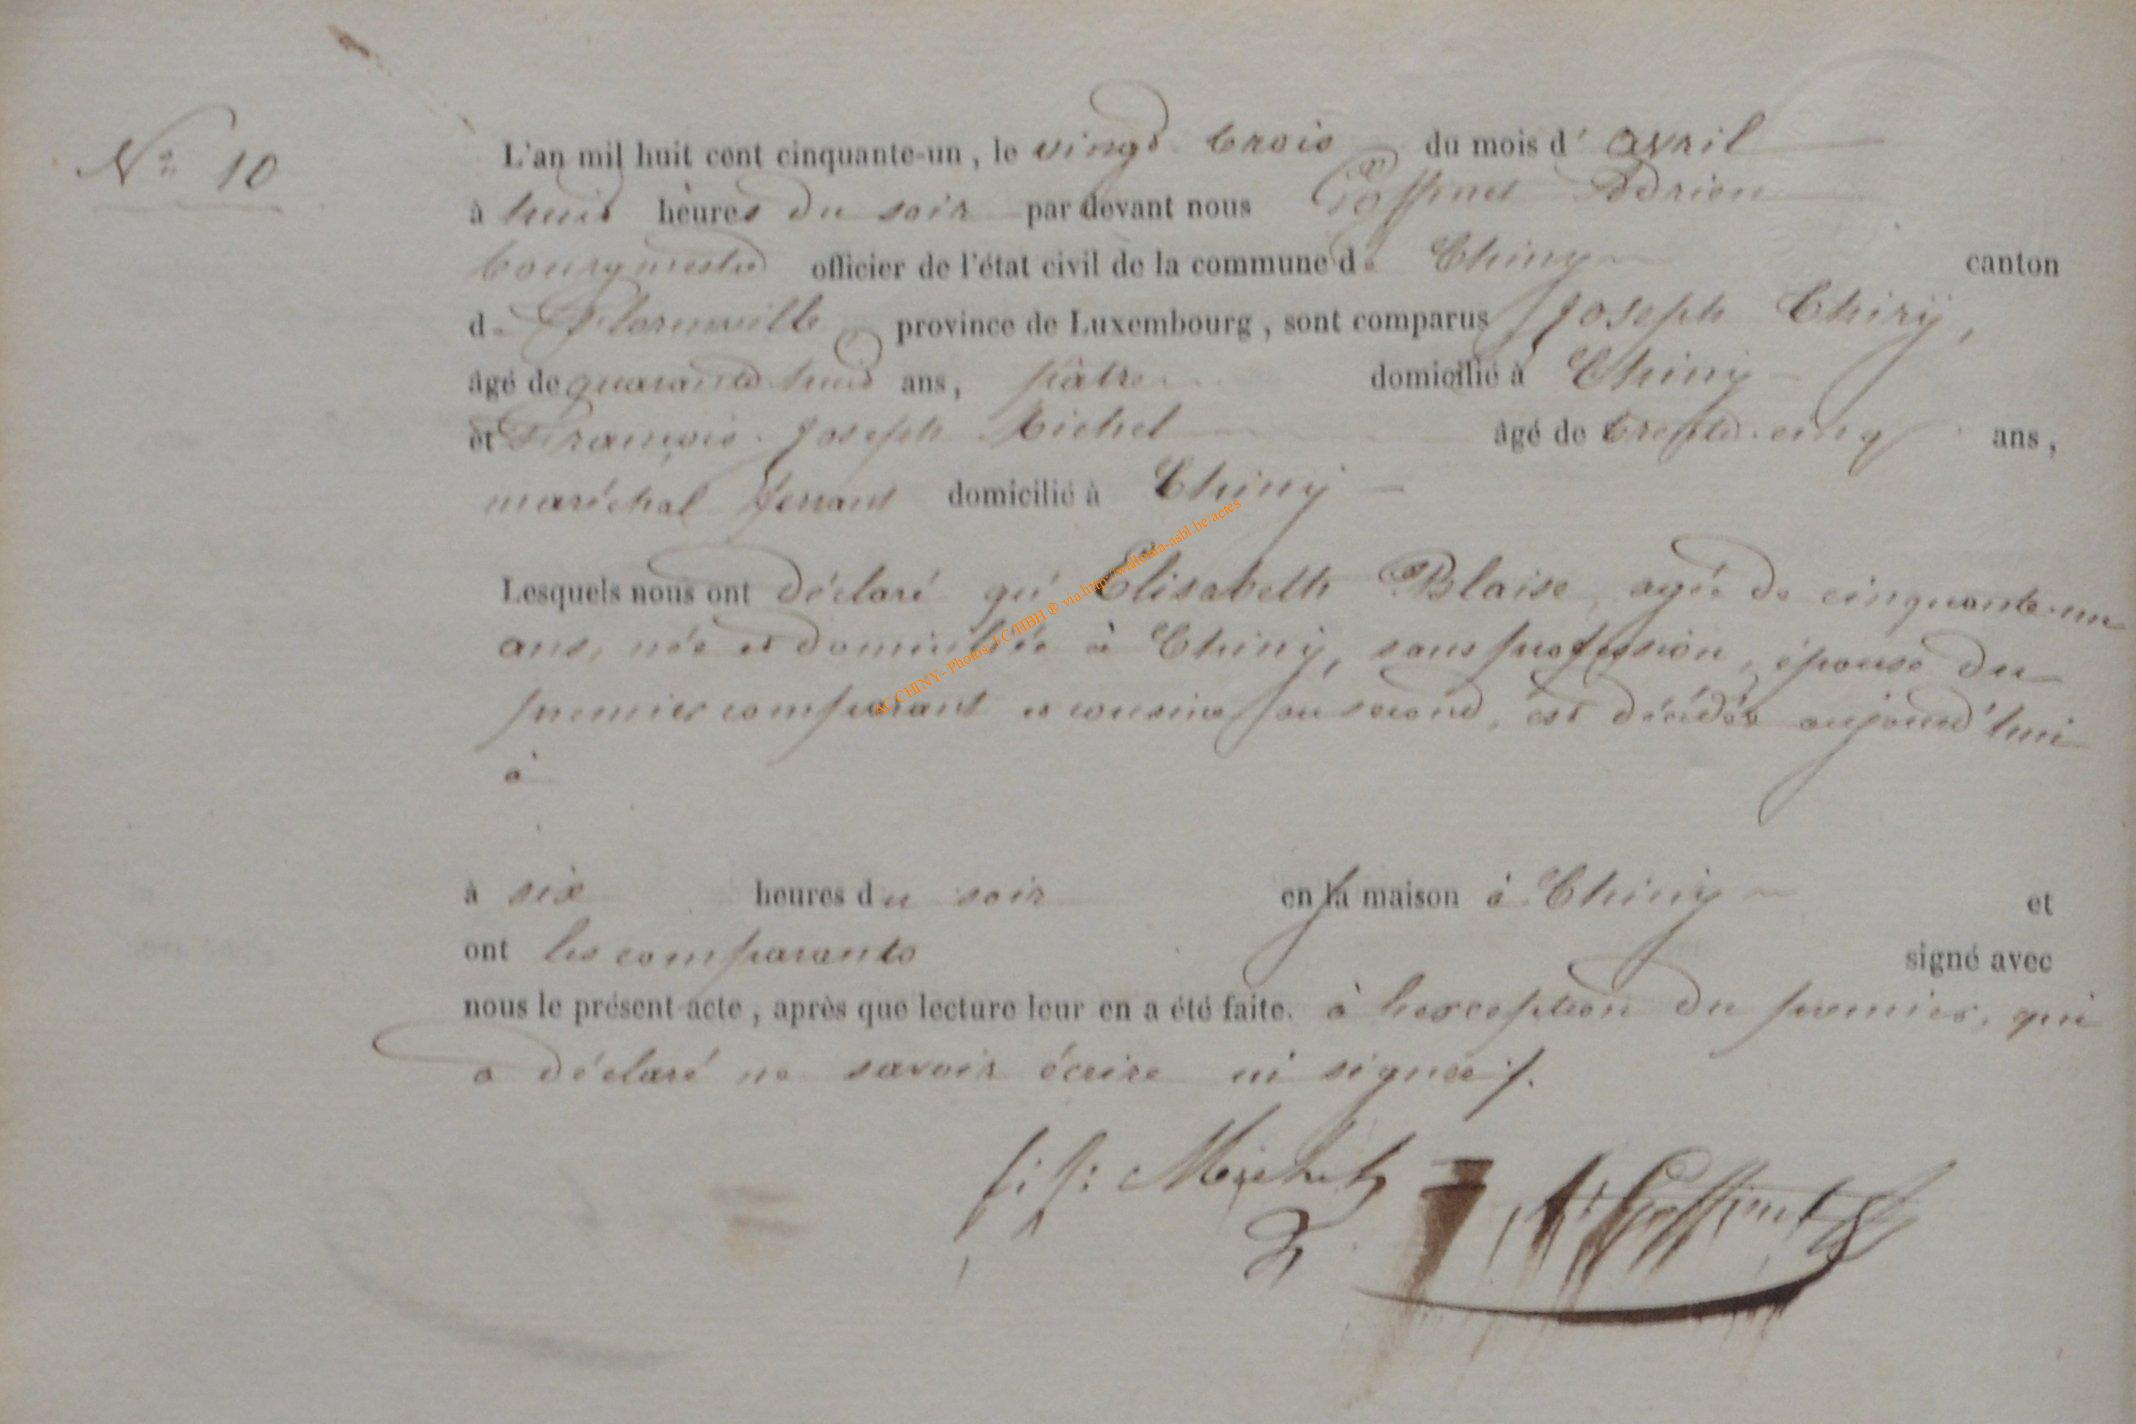 N° 10
L'an mil huit cent cinquante-un, le vingt trois du mois d'avril
à huit heures du soir par devant nous Goffinet Adrien
bourgmestre officier de l'état civil de la commune de Chiny canton
de Florenville province de Luxembourg, sont comparus Joseph Thiry,
âgé de quarante huit ans, pâtre domicilié à Chiny
et François Joseph Michel âgé de trente-cinq ans,
maréchal ferrant domicilié à Chiny
Lesquels nous ont déclaré qu'Elisabeth Blaise, agée de cinquante-un
ans, née et domiciliée à Chiny, sans profession, épouse du
premier comparant et cousine au second, est décédée aujourd'hui
à
à six heures du soir en sa maison à Chiny et
ont les comparants signé avec
nous le présent acte, après que lecture leur en a été faite. à l'exception du premier, qui
a déclaré ne savoir écrire ni signer /.
f: j: Michel A Goffinet
AC CHINY - Photos J-C HBH ® via http://wallonia-asbl.be/actes